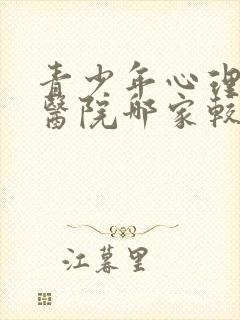 青少年心理
醫院哪家較
江暮里